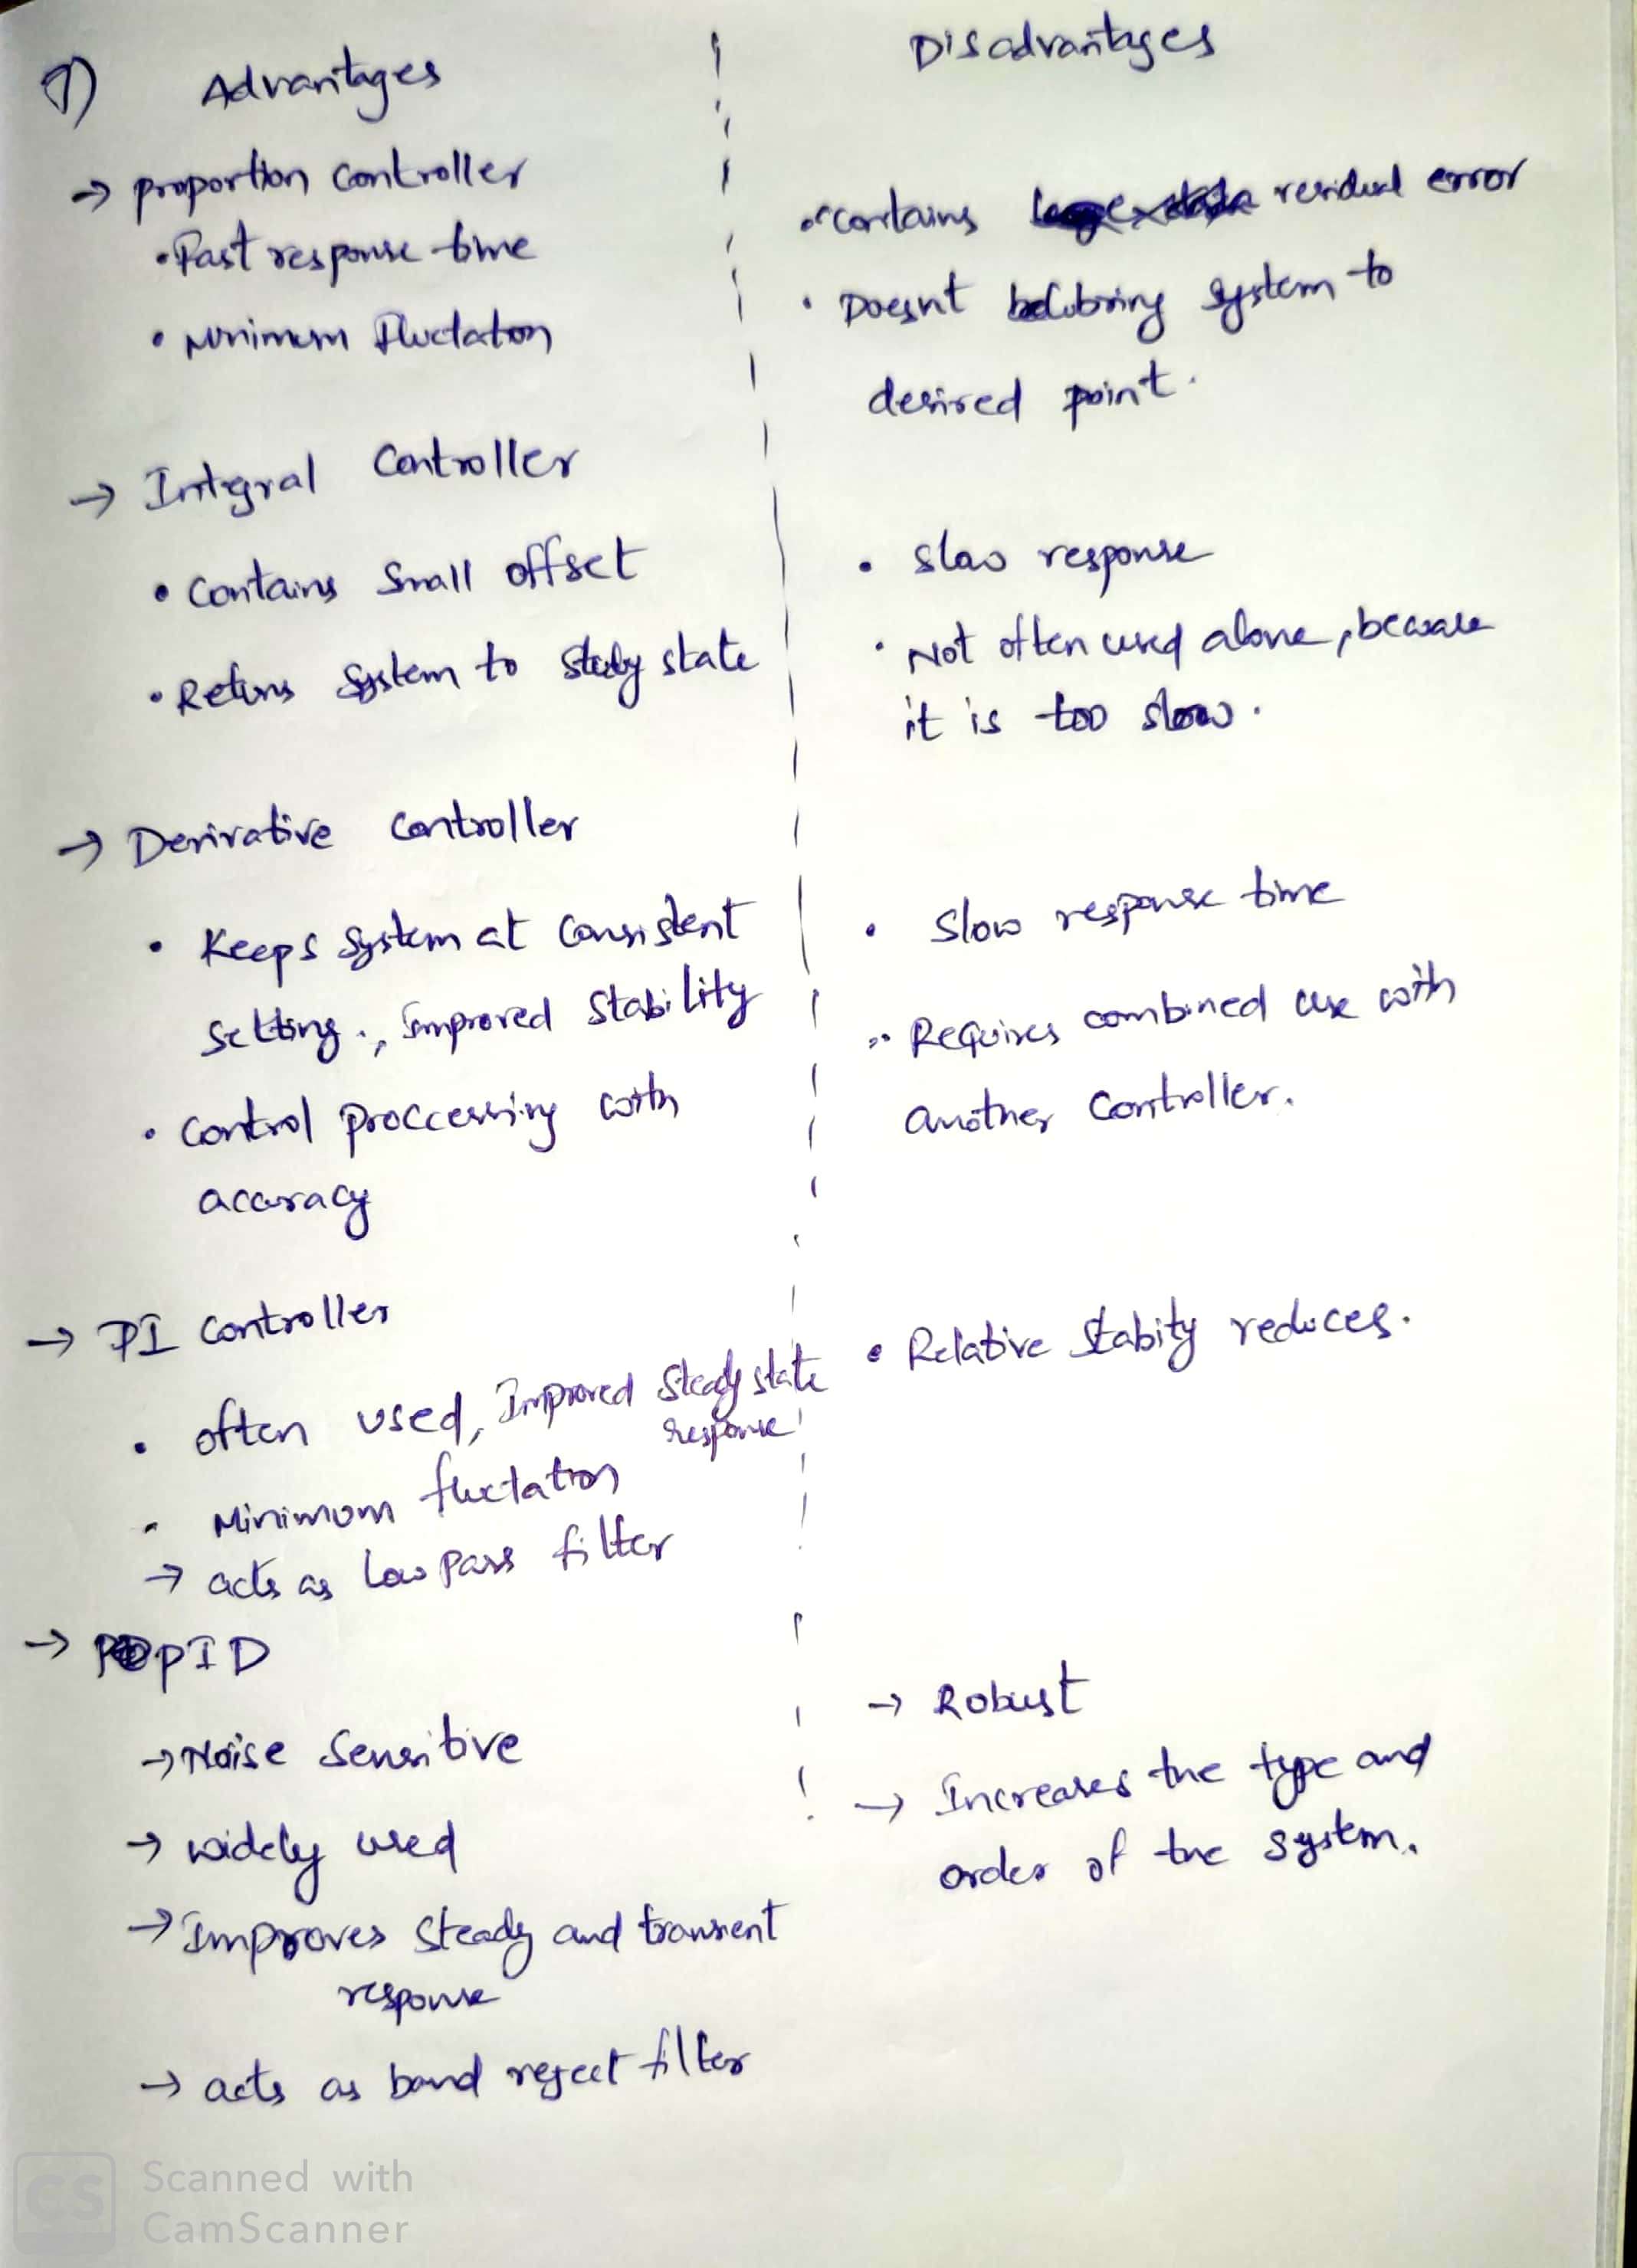 7) Advantages
Disadvantages
→ proportion controller
• Fast response time
• Minimum Fluctation
• contains residual error
• Doesnt bring system to
desired point.
→ Integral Controller
• Contains Small offset
• Returns System to state
• slow response
• Not often used alone, because
it is too slow.
→ Derivative controller
• Keeps System at Consistent
Setting., Improved Stability
• control proccessing with
accuracy
• Slow response time
• Requires combined use with
another Controller.
→ PI Controller
• often used, Improved Steady state
response
• Minimum fluctation
→ acts as Low Pass filter
• Relative Stabity reduces.
→ PID
→ Noise Sensitive
→ widely used
→ Improves Steady and transient
response
→ acts as band reject filter
→ Robust
→ Increases the type and
order of the system.
CS
Scanned with
CamScanner